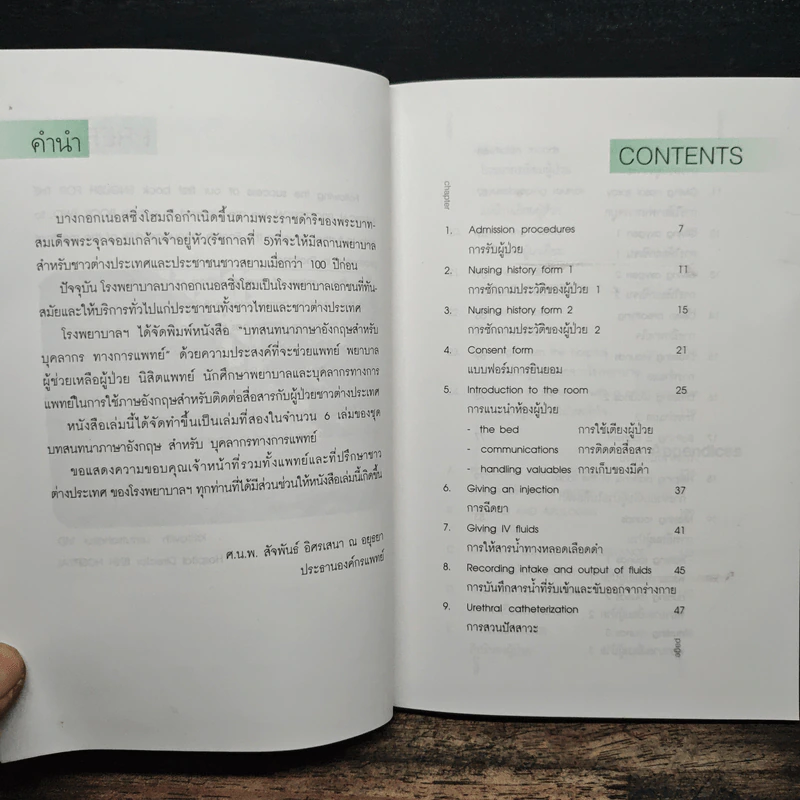 คำนำ
บางกอกเนอสซิ่งโฮมถือกำเนิดขึ้นตามพระราชดำริของพระบาท-
สมเด็จพระจุลจอมเกล้าเจ้าอยู่หัว(รัชกาลที่ 5)ที่จะให้มีสถานพยาบาล
สำหรับชาวต่างประเทศและประชาชนชาวสยามเมื่อกว่า 100 ปีก่อน
ปัจจุบัน โรงพยาบาลบางกอกเนอสซิ่งโฮมเป็นโรงพยาบาลเอกชนที่ทัน-
สมัยและให้บริการทั่วไปแก่ประชาชนทั้งชาวไทยและชาวต่างประเทศ
โรงพยาบาลฯ ได้จัดพิมพ์หนังสือ "บทสนทนาภาษาอังกฤษสำหรับ
บุคลากร ทางการแพทย์" ด้วยความประสงค์ที่จะช่วยแพทย์ พยาบาล
ผู้ช่วยเหลือผู้ป่วย นิสิตแพทย์ นักศึกษาพยาบาลและบุคลากรทางการ
แพทย์ในการใช้ภาษาอังกฤษสำหรับติดต่อสื่อสารกับผู้ป่วยชาวต่างประเทศ
หนังสือเล่มนี้ได้จัดทำขึ้นเป็นเล่มที่สองในจำนวน 6 เล่มของชุด
บทสนทนาภาษาอังกฤษ สำหรับ บุคลากรทางการแพทย์
ขอแสดงความขอบคุณเจ้าหน้าที่รวมทั้งแพทย์และที่ปรึกษาชาว
ต่างประเทศ ของโรงพยาบาลฯ ทุกท่านที่ได้มีส่วนช่วยให้หนังสือเล่มนี้เกิดขึ้น
ศ.น.พ. สัจพันธ์ อิศรเสนา ณ อยุธยา
ประธานองค์กรแพทย์
CONTENTS
chapter
1. Admission procedures 7
การรับผู้ป่วย
2. Nursing history form 1 11
การซักถามประวัติของผู้ป่วย 1
3. Nursing history form 2 15
การซักถามประวัติของผู้ป่วย 2
4. Consent form 21
แบบฟอร์มการยินยอม
5. Introduction to the room 25
การแนะนำห้องผู้ป่วย
- the bed การใช้เตียงผู้ป่วย
- communications การติดต่อสื่อสาร
- handling valuables การเก็บของมีค่า
6. Giving an injection 37
การฉีดยา
7. Giving IV fluids 41
การให้สารน้ำทางหลอดเลือดดำ
8. Recording intake and output of fluids 45
การบันทึกสารน้ำที่รับเข้าและขับออกจากร่างกาย
9. Urethral catheterization 47
การสวนปัสสาวะ
page